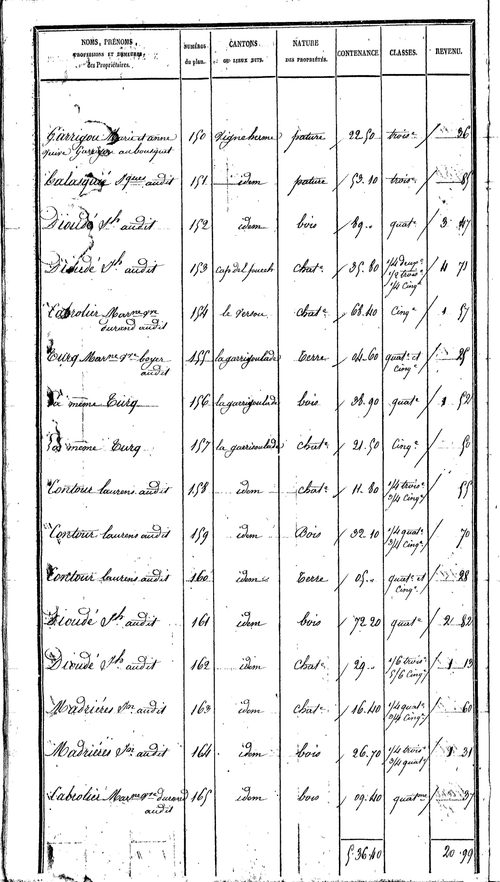 NOMS, PRÉNOMS, PROFESSIONS ET DEMEURES des Propriétaires. NUMÉROS du plan. CANTONS OU LIEUX DITS. NATURE DES PROPRIÉTÉS. CONTENANCE CLASSES. REVENU.
Garrigou Marie et anne 150 Vigneberme pature 22 50 trois.e 36
Garrigou au bousquat
Calasquié Jques audit 151 idem pature 53.10 trois.e 85
Dioudé Jh audit 152 idem bois 89 .. quat.e 3 47
Dioudé Jh audit 153 cap del puech chat.e 35.80 1/4 deux.e 1/2 trois.e 1/4 cinq.e 4 71
Cabrolier Mar.ne v.ve 154 le Versou chat.e 68.40 Cinq.e 1 57
durand audit
Turq Mar.ne v.ve boyer 155 la garrigoulade Terre 04.60 quat.e et cinq.e 25
audit
La même Turq 156 la garrigoulade bois 38.90 quat.e 1 52
La même Turq 157 la garrigoulade chat.e 21.50 Cinq.e 50
Contour laurens audit 158 idem chat.e 11.80 1/4 trois.e 3/4 cinq.e 55
Contour laurens audit 159 idem Bois 32.10 1/4 quat.e 3/4 cinq.e 70
Contour laurens audit 160 idem Terre 05 .. quat.e et cinq.e 28
Dioudé Jh audit 161 idem bois 72.20 quat.e 2 82
Dioudé Jh audit 162 idem chat.e 29 .. 1/6 trois.e 5/6 cinq.e 1 13
Madriéres audit 163 idem chat.e 16.40 1/4 quat.e 3/4 cinq.e 60
Madriéres audit 164 idem bois 26.70 1/4 trois.e 3/4 quat.e 1 31
Cabrolier Mar.ne v.ve durand 165 idem bois 09.40 quat.me 37
audit
5.36.40 20.99